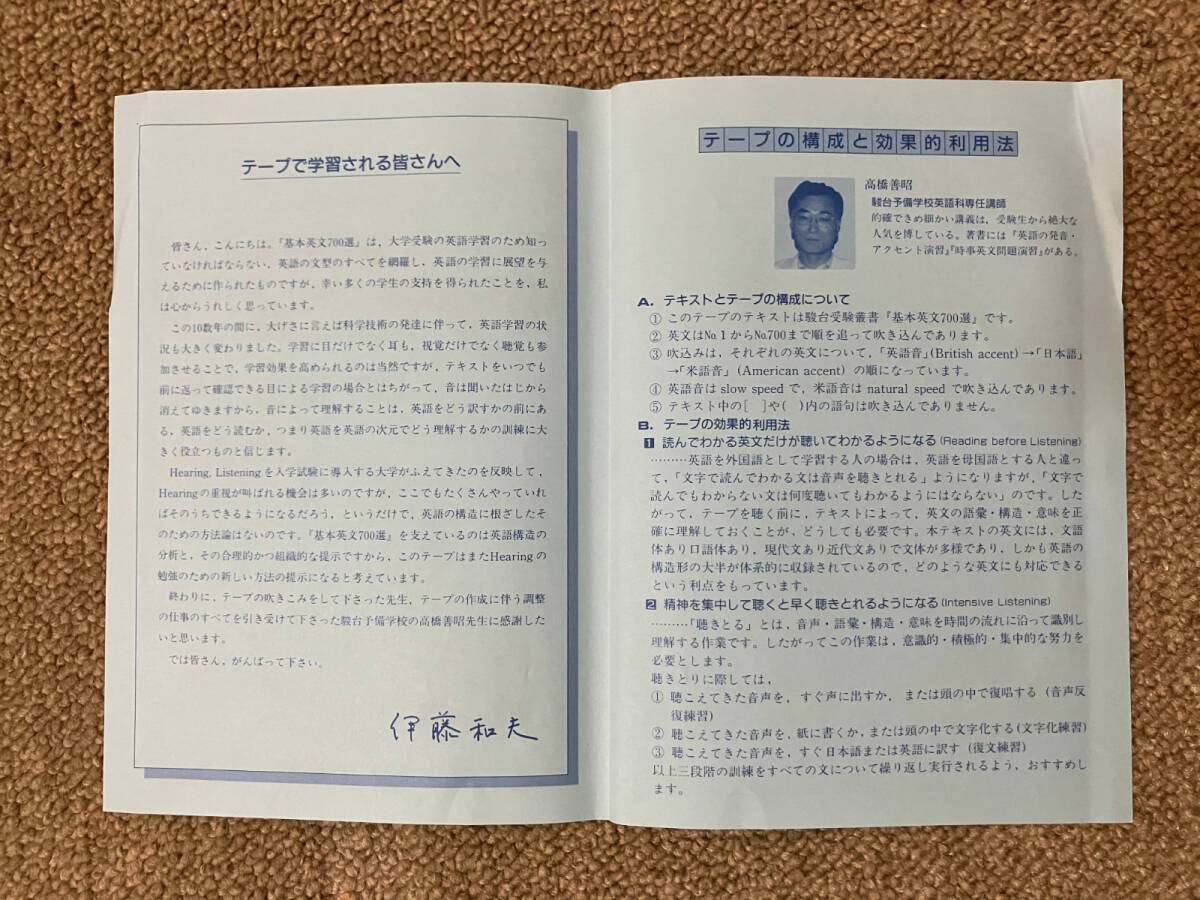 テープで学習される皆さんへ
皆さん，こんにちは。『基本英文700選』は，大学受験の英語学習のため知っ
ていなければならない，英語の文型のすべてを網羅し，英語の学習に展望を与
えるために作られたものですが，幸い多くの学生の支持を得られたことを，私
は心からうれしく思っています。
この10数年の間に，大げさに言えば科学技術の発達に伴って，英語学習の状
況も大きく変わりました。学習に目だけでなく耳も，視覚だけでなく聴覚も参
加させることで，学習効果を高められるのは当然ですが，テキストをいつでも
前に返って確認できる目による学習の場合とはちがって，音は聞いたはじから
消えてゆきますから，音によって理解することは，英語をどう訳すかの前にあ
る，英語をどう読むか，つまり英語を英語の次元でどう理解するかの訓練に大
きく役立つものと信じます。
Hearing, Listeningを入学試験に導入する大学がふえてきたのを反映して，
Hearingの重視が叫ばれる機会は多いのですが，ここでもたくさんやっていれ
ばそのうちできるようになるだろう，というだけで，英語の構造に根ざしたそ
のための方法論はないのです。『基本英文700選』を支えているのは英語構造の
分析と，その合理的かつ組織的な提示ですから，このテープはまたHearingの
勉強のための新しい方法の提示になると考えています。
終わりに，テープの吹きこみをして下さった先生，テープの作成に伴う調整
の仕事のすべてを引き受けて下さった駿台予備学校の高橋善昭先生に感謝した
いと思います。
では皆さん，がんばって下さい。
伊藤和夫
テープの構成と効果的利用法
高橋善昭
駿台予備学校英語科専任講師
的確できめ細かい講義は，受験生から絶大な
人気を博している。著書には『英語の発音・
アクセント演習』『時事英文問題演習』がある。
A．テキストとテープの構成について
① このテープのテキストは駿台受験叢書『基本英文700選』です。
② 英文はNo.1からNo.700まで順を追って吹き込んであります。
③ 吹込みは，それぞれの英文について，「英語音」(British accent)→「日本語」
→「米語音」(American accent) の順になっています。
④ 英語音は slow speed で，米語音は natural speed で吹き込んであります。
⑤ テキスト中の[　]や(　)内の語句は吹き込んでありません。
B．テープの効果的利用法
1 読んでわかる英文だけが聴いてわかるようになる(Reading before Listening)
………英語を外国語として学習する人の場合は，英語を母国語とする人と違っ
て，「文字で読んでわかる文は音声を聴きとれる」ようになりますが，「文字で
読んでもわからない文は何度聴いてもわかるようにはならない」のです。した
がって，テープを聴く前に，テキストによって，英文の語彙・構造・意味を正
確に理解しておくことが，どうしても必要です。本テキストの英文には，文語
体あり口語体あり，現代文あり近代文ありで文体が多様であり，しかも英語の
構造形の大半が体系的に収録されているので，どのような英文にも対応できる
という利点をもっています。
2 精神を集中して聴くと早く聴きとれるようになる(Intensive Listening)
………「聴きとる」とは，音声・語彙・構造・意味を時間の流れに沿って識別し
理解する作業です。したがってこの作業は，意識的・積極的・集中的な努力を
必要とします。
聴きとりに際しては，
① 聴こえてきた音声を，すぐ声に出すか，または頭の中で復唱する (音声反
復練習)
② 聴こえてきた音声を，紙に書くか，または頭の中で文字化する(文字化練習)
③ 聴こえてきた音声を，すぐ日本語または英語に訳す (復文練習)
以上三段階の訓練をすべての文について繰り返し実行されるよう，おすすめし
ます。